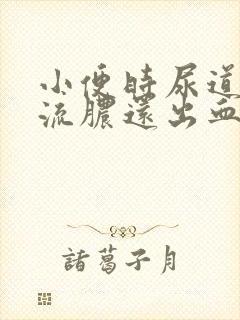 小便時尿道
流膿還出血
諸葛子月